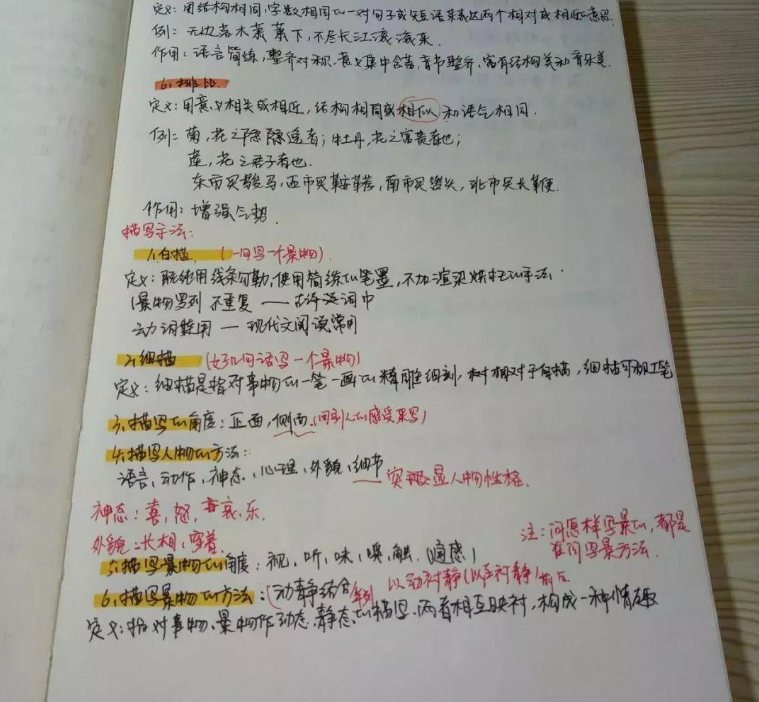 定义：用结构相同，字数相同的一对句子或短语来表达两个相对或相近意思
例：无边落木萧萧下，不尽长江滚滚来.
作用：语言简练，整齐对称，意义集中含蓄，音节整齐，富有结构美和音乐美.
6、排比
定义：用意义相关或相近，结构相同或相似和语气相同.
例：菊，花之隐逸者；牡丹，花之富贵者也；
莲，花之君子者也.
东市买骏马，西市买鞍鞯，南市买辔头，北市买长鞭.
作用：增强气势.
描写手法：
1、白描 (一句写一个景物).
定义：用线条勾勒，使用简练的笔墨，不加渲染烘托的手法.
景物罗列 不重复 — 古诗词中
动词 — 现代文阅读常用
2、细描 (好几句话写一个景物)
定义：细描是指对事物的一笔一画的精雕细刻，相对于白描，细描可极工笔
3、描写的角度：正面，侧面.(同别人的感受来写)
4、描写人物的方法：
语言，动作，神态，心理，外貌，细节 突显人物性格.
神态：喜，怒，哀，乐.
外貌：长相，穿着. 注：问怎样写景的，都是
在问写景方法.
5、描写景物的角度：视，听，味，嗅，触 (通感)
6、描写景物的方法：(动静结合 以动衬静(以声衬静)
定义：指对事物、景物作动态、静态的描写，两者相互映衬，构成一种情趣